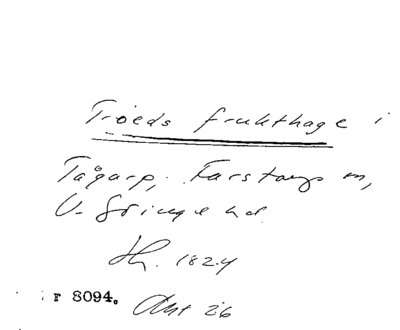 Tröeds frukthage i
Tågarp, Farstorps sn,
V. Göinge hd.
Th. 1824
r 8094. Ant 26